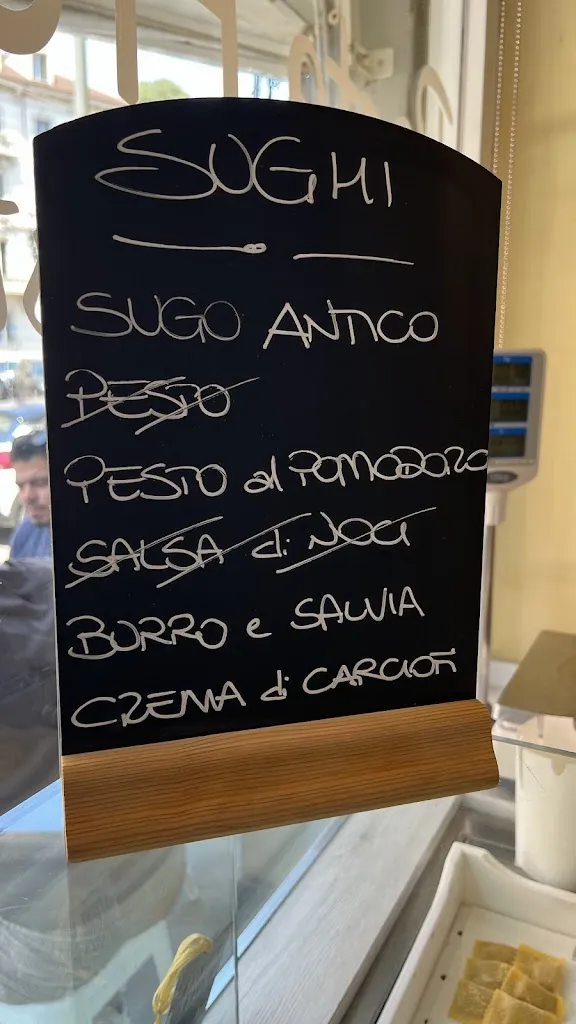 SUGHI
SUGO ANTICO
PESTO
PESTO al POMODORO
SALSA di NOCI
BURRO e SALVIA
CREMA di CARCIOFI